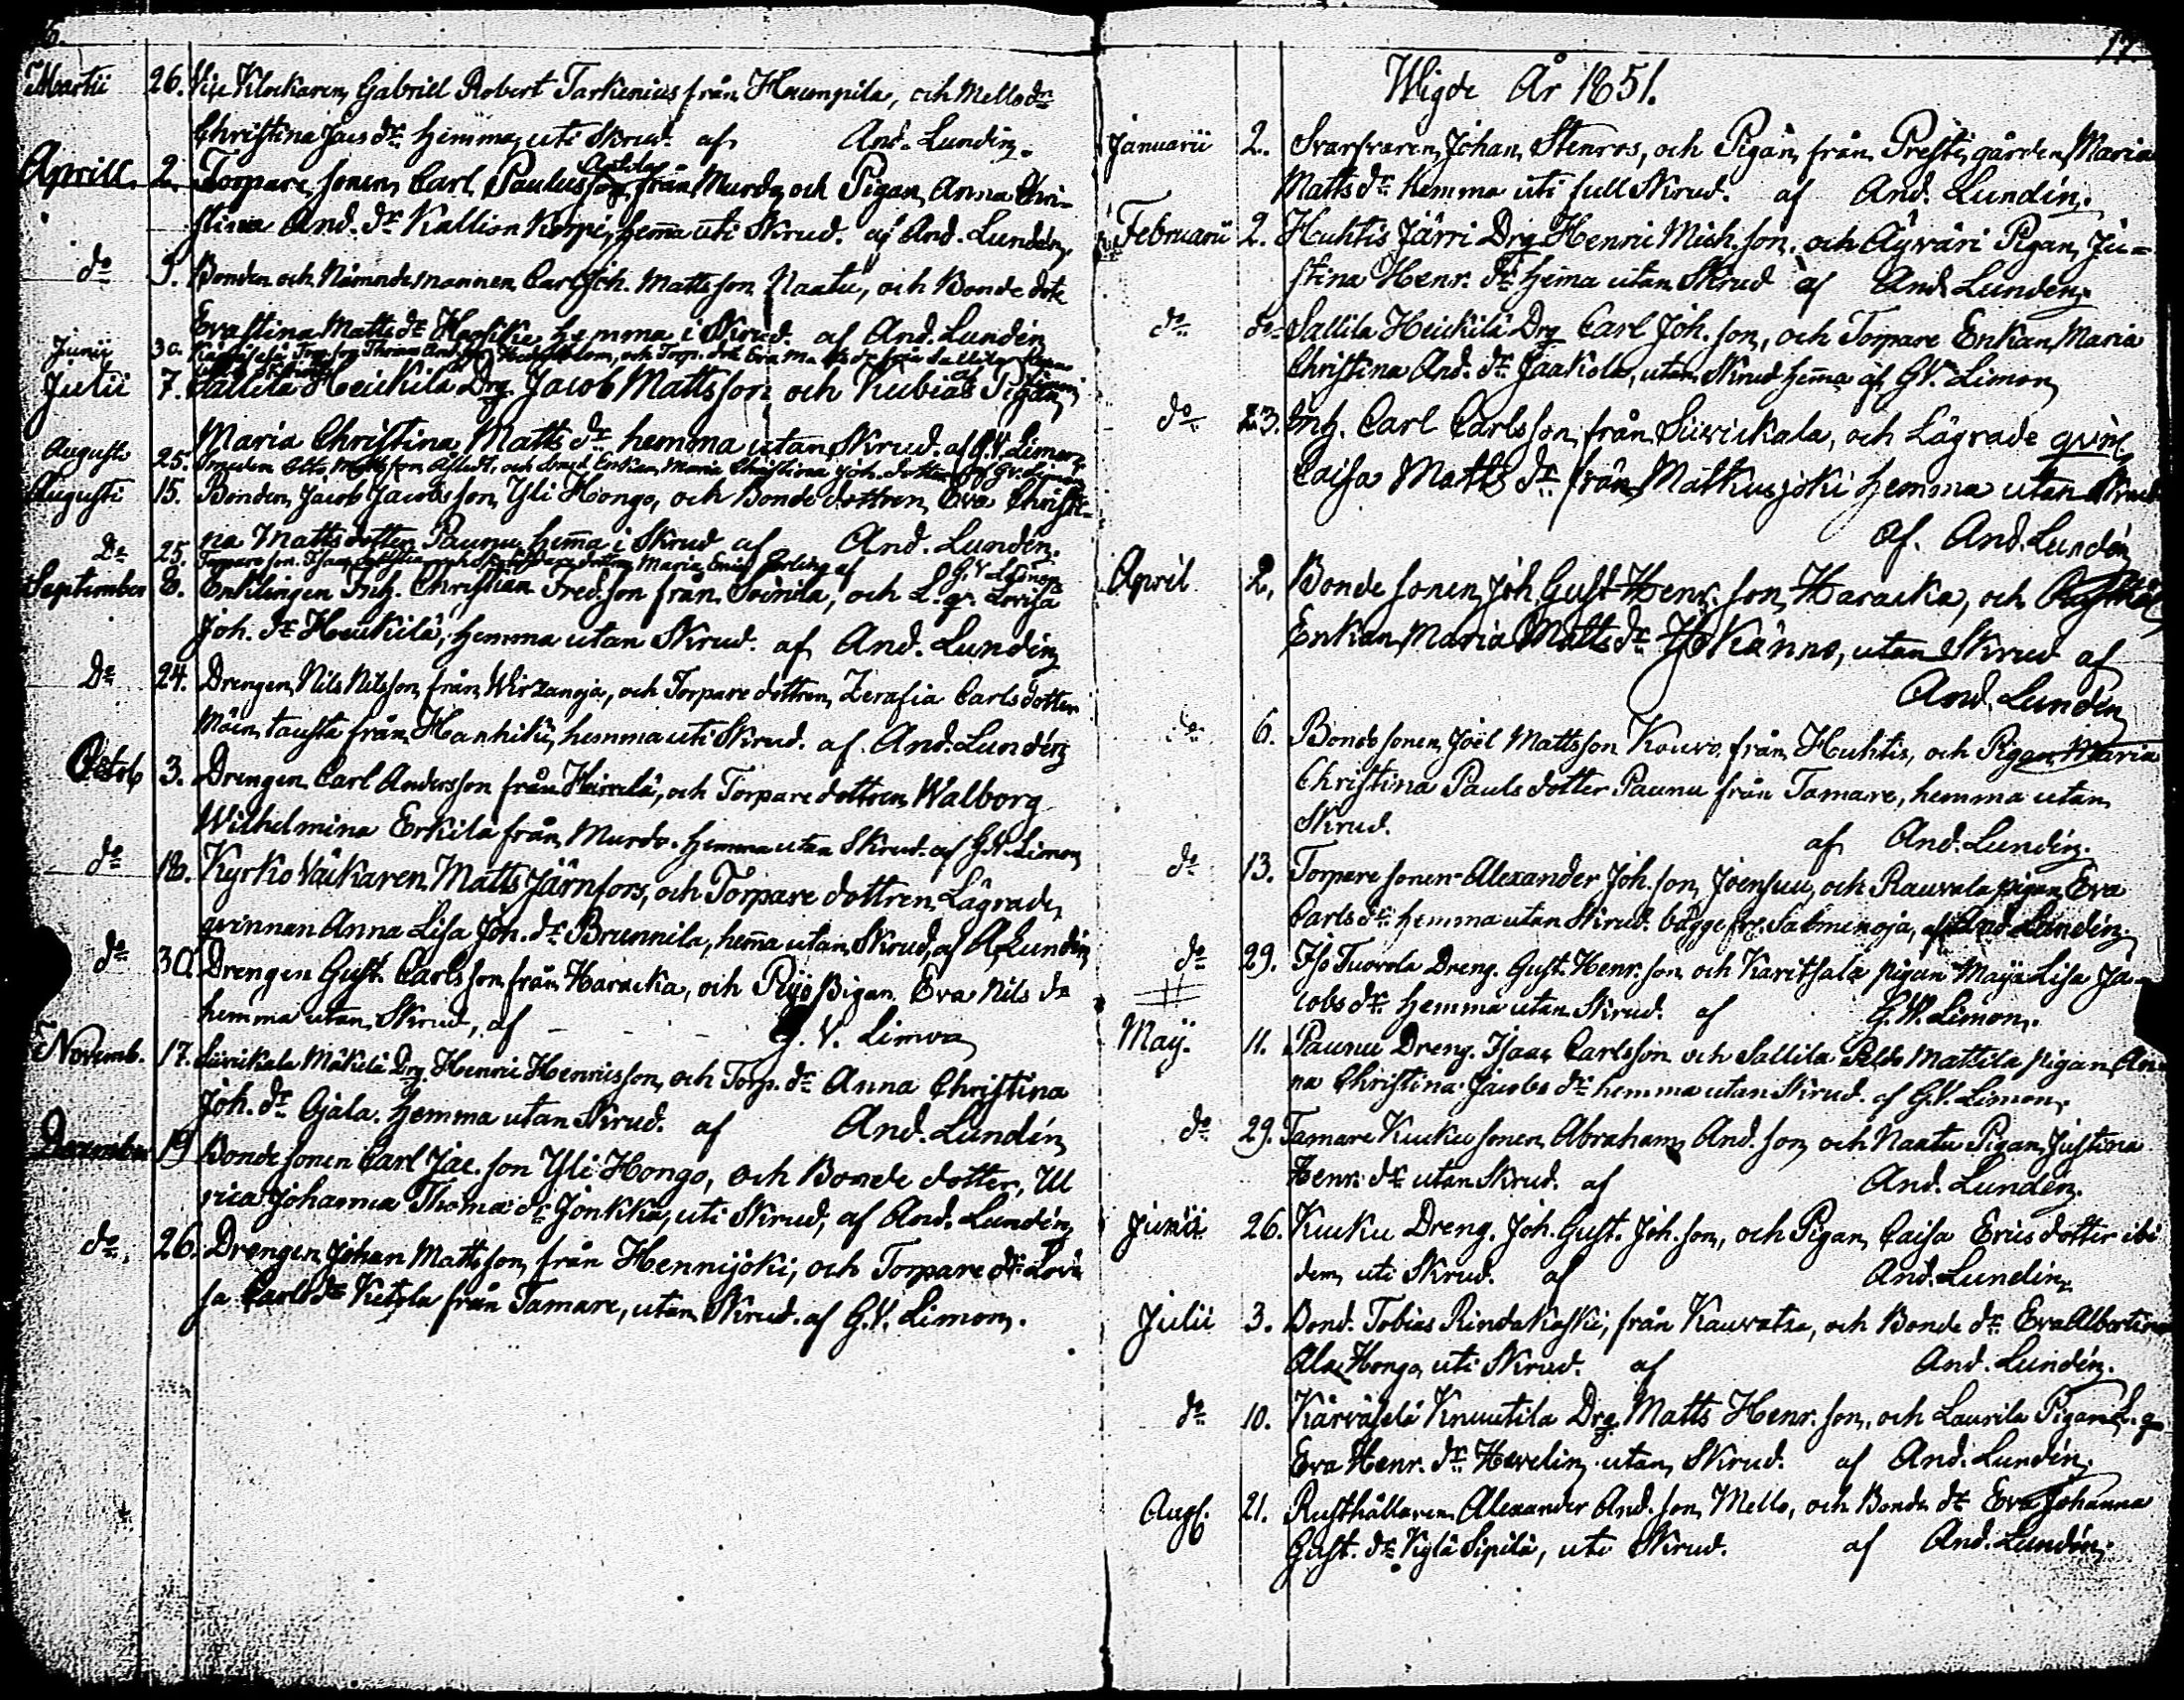 Martii 26. Vice Klockaren, Gabriell Robert Tarkenius från Huumpila, och Mello dr
Christina Jacs dr hemma, uti Skrud. af And. Lundén.
Aprill. 2. Torpare sonen, Carl Paulus son, från Murdo, och Pigan, Anna Chri-
stina And. dr Kallion Korpi, hema uti Skrud. af And. Lundén,
do 5. Bonden och Nämndemannen Carl Joh. Mattsson Naatu, och Bonde dotr
Eva Stina Matts dr hemma i Skrud. af And. Lundén
Junii 30. Torp. son Thomas And. son och Torp. dotr Eva
Julii 7. Sallila Heickilä Drg. Jacob Mattsson och Kubias Pigan,
Maria Christina Matts dr hemma utan Skrud. af G.V. Limon,
Augusti 25. Smeden Otto Mattsson och Enkan, Maria Christina Joh. dotter af GV. Limon
Augusti 15. Bonden, Jacob Jacobsson, Yli Hongo, och Bonde dottren, Eva Christi-
na Mattsdotter Paunu, hema i Skrud af And. Lundén.
Do 25. Torpare son. Isaac och dottren Maria af G.V. Limon
September 8. Enklingen Inh. Christian Fred.son från Soinila, och L. qv. Lovisa
Joh. dr Heickilä, hemma utan Skrud. af And. Lundén
Do 24. Drengen, Nils Nilsson, från Wirzanoja, och Torpare dottren, Zerafia Carlsdotter
Mäen tausta från Hanhikü, hemma uti Skrud. af And. Lundén
Octob 3. Drengen Carl Andersson från Heivilä, och Torpare dottren Walborg
Wilhelmina Erkilä från Murdo. hemma utan Skrud. af G.V. Limon,
do 18. Kyrko Väktaren, Matts Järnfors, och Torpare dottren, Lägrade,
qvinnan Anna Lisa Joh. dr Brunnila, hema utan Skrud, af A. Lundén
do 30. Drengen Gust. Carlsson från Haracka, och Pijo Pigan Eva Nils dr
hemma utan Skrud, af G. V. Limon
Novemb. 17. Siivikala Mäkilä Drg. Henric Henricsson, och Torp. dr Anna Christina
Joh. dr Ojala. hemma utan Skrud. af And. Lundén
December 19 Bonde sonen Carl Jac. son Yli Hongo, och Bonde dotter, Ul
rica Johanna Thomæ dr Jonkka, uti Skrud, af And. Lundén,
do 26. Drengen, Johan Mattsson, från Hennijoki, och Torpare dr Lovi
sa Carls dr Kietola från Tamare, utan Skrud. af G.V. Limon.
17.
Wigde År 1851.
Januarii 2. Svarfvaren, Johan, Stenros, och Pigan, från Prestegården, Maria
Matts dr hemma uti full Skrud. af And. Lundén.
Februarii 2. Huhtis Järri Drg. Henric Mich. son. och Äyväri Pigan, Ju-
stina Henr. dr hema utan Skrud af And. Lundén,
do do Sallila Heickilä Drg Carl Joh. son, och Torpare Enkan, Maria
Christina And. dr Jaakola, utan Skrud hema af G.V. Limon,
do 23. Inh. Carl Carlsson från Siivickala, och Lägrade qvin.
Caisa Matts dr från Matkusjoki hemma utan Skrud
af. And. Lundén
April 2. Bonde sonen, Joh Gust Henr. son, Haracka, och
Enkan, Maria Matts dr utan Skrud af
And. Lundén
do 6. Bonde sonen, Joël Mattsson Kouvo, från Huhtis, och Pigan Maria
Christina Pauls dotter Paunu från Tamare, hemma utan
Skrud. af And. Lundén.
do 13. Torpare sonen Alexander Joh. son, Joensuu, och Rauvala pigan Eva
Carls dr hemma utan Skrud. bägge frn Salmenoja, af And. Lundén.
do 29. Iso Tuorola Dreng. Gust. Henr. son och Karitsala pigan Maja Lisa Ja-
cobs dr hemma utan Skrud. af G.V. Limon.
Maÿ. 11. Paunu Dreng. Isaac Carlsson och Sallila Peldo Mattila pigan An-
na Christina Jacobs dr hemma utan Skrud. af G.V. Limon.
do 29. Tamare Kucku sonen, Abraham And. son, och Naatu Pigan, Justina
Henr. dr utan Skrud. af And. Lundén.
Junii 26. Kucku Dreng. Joh. Gust. Joh. son, och Pigan, Caisa Ericsdotter ibi
dem, uti Skrud. af And. Lundén,
Julii 3. Bond. Tobias Rindakoski, från Kauvatsa, och Bonde dr Eva Albertina
Ala Hongo, uti Skrud. af And. Lundén.
do 10. Kärväselä Knuutila Drg. Matts Henr. son, och Laurila Pigan L. q.
Eva Henr. dr Hevelin, utan, Skrud. af And. Lundén.
Aug. 21. Rusthållaren, Alexander And. son, Mello, och Bonde dr Eva Johanna
Gust. dr Kylä Sipilä, uti Skrud. af And. Lundén.